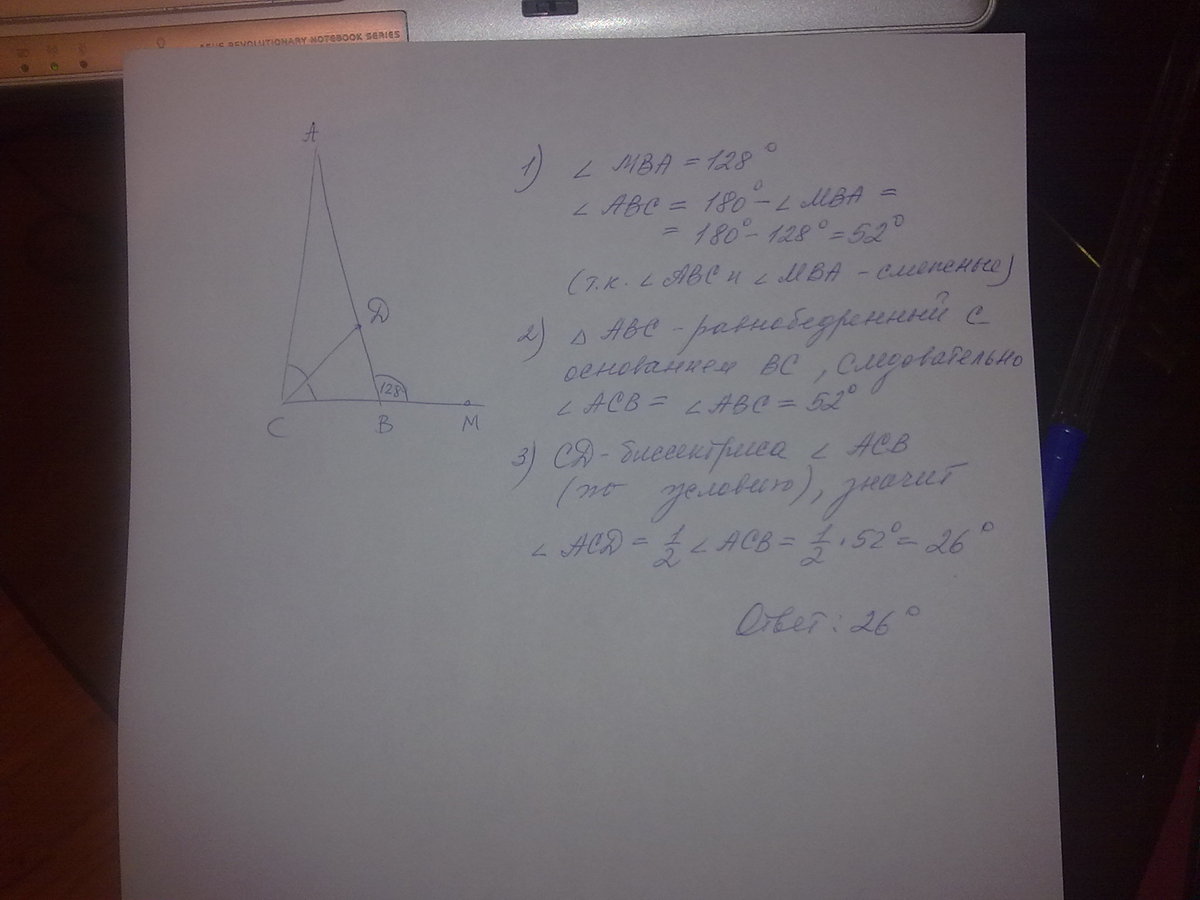 ASUS REVOLUTIONARY NOTEBOOK SERIES
A
D
128
C
B
M
1) ∠ MBA = 128°
∠ ABC = 180° - ∠ MBA =
= 180° - 128° = 52°
(т.к. ∠ ABC и ∠ MBA - смежные)
2) △ ABC - равнобедренный с
основанием BC, следовательно
∠ ACB = ∠ ABC = 52°
3) CD - биссектриса ∠ ACB
(по условию), значит
∠ ACD = 1/2 ∠ ACB = 1/2 · 52° = 26°
Ответ: 26°